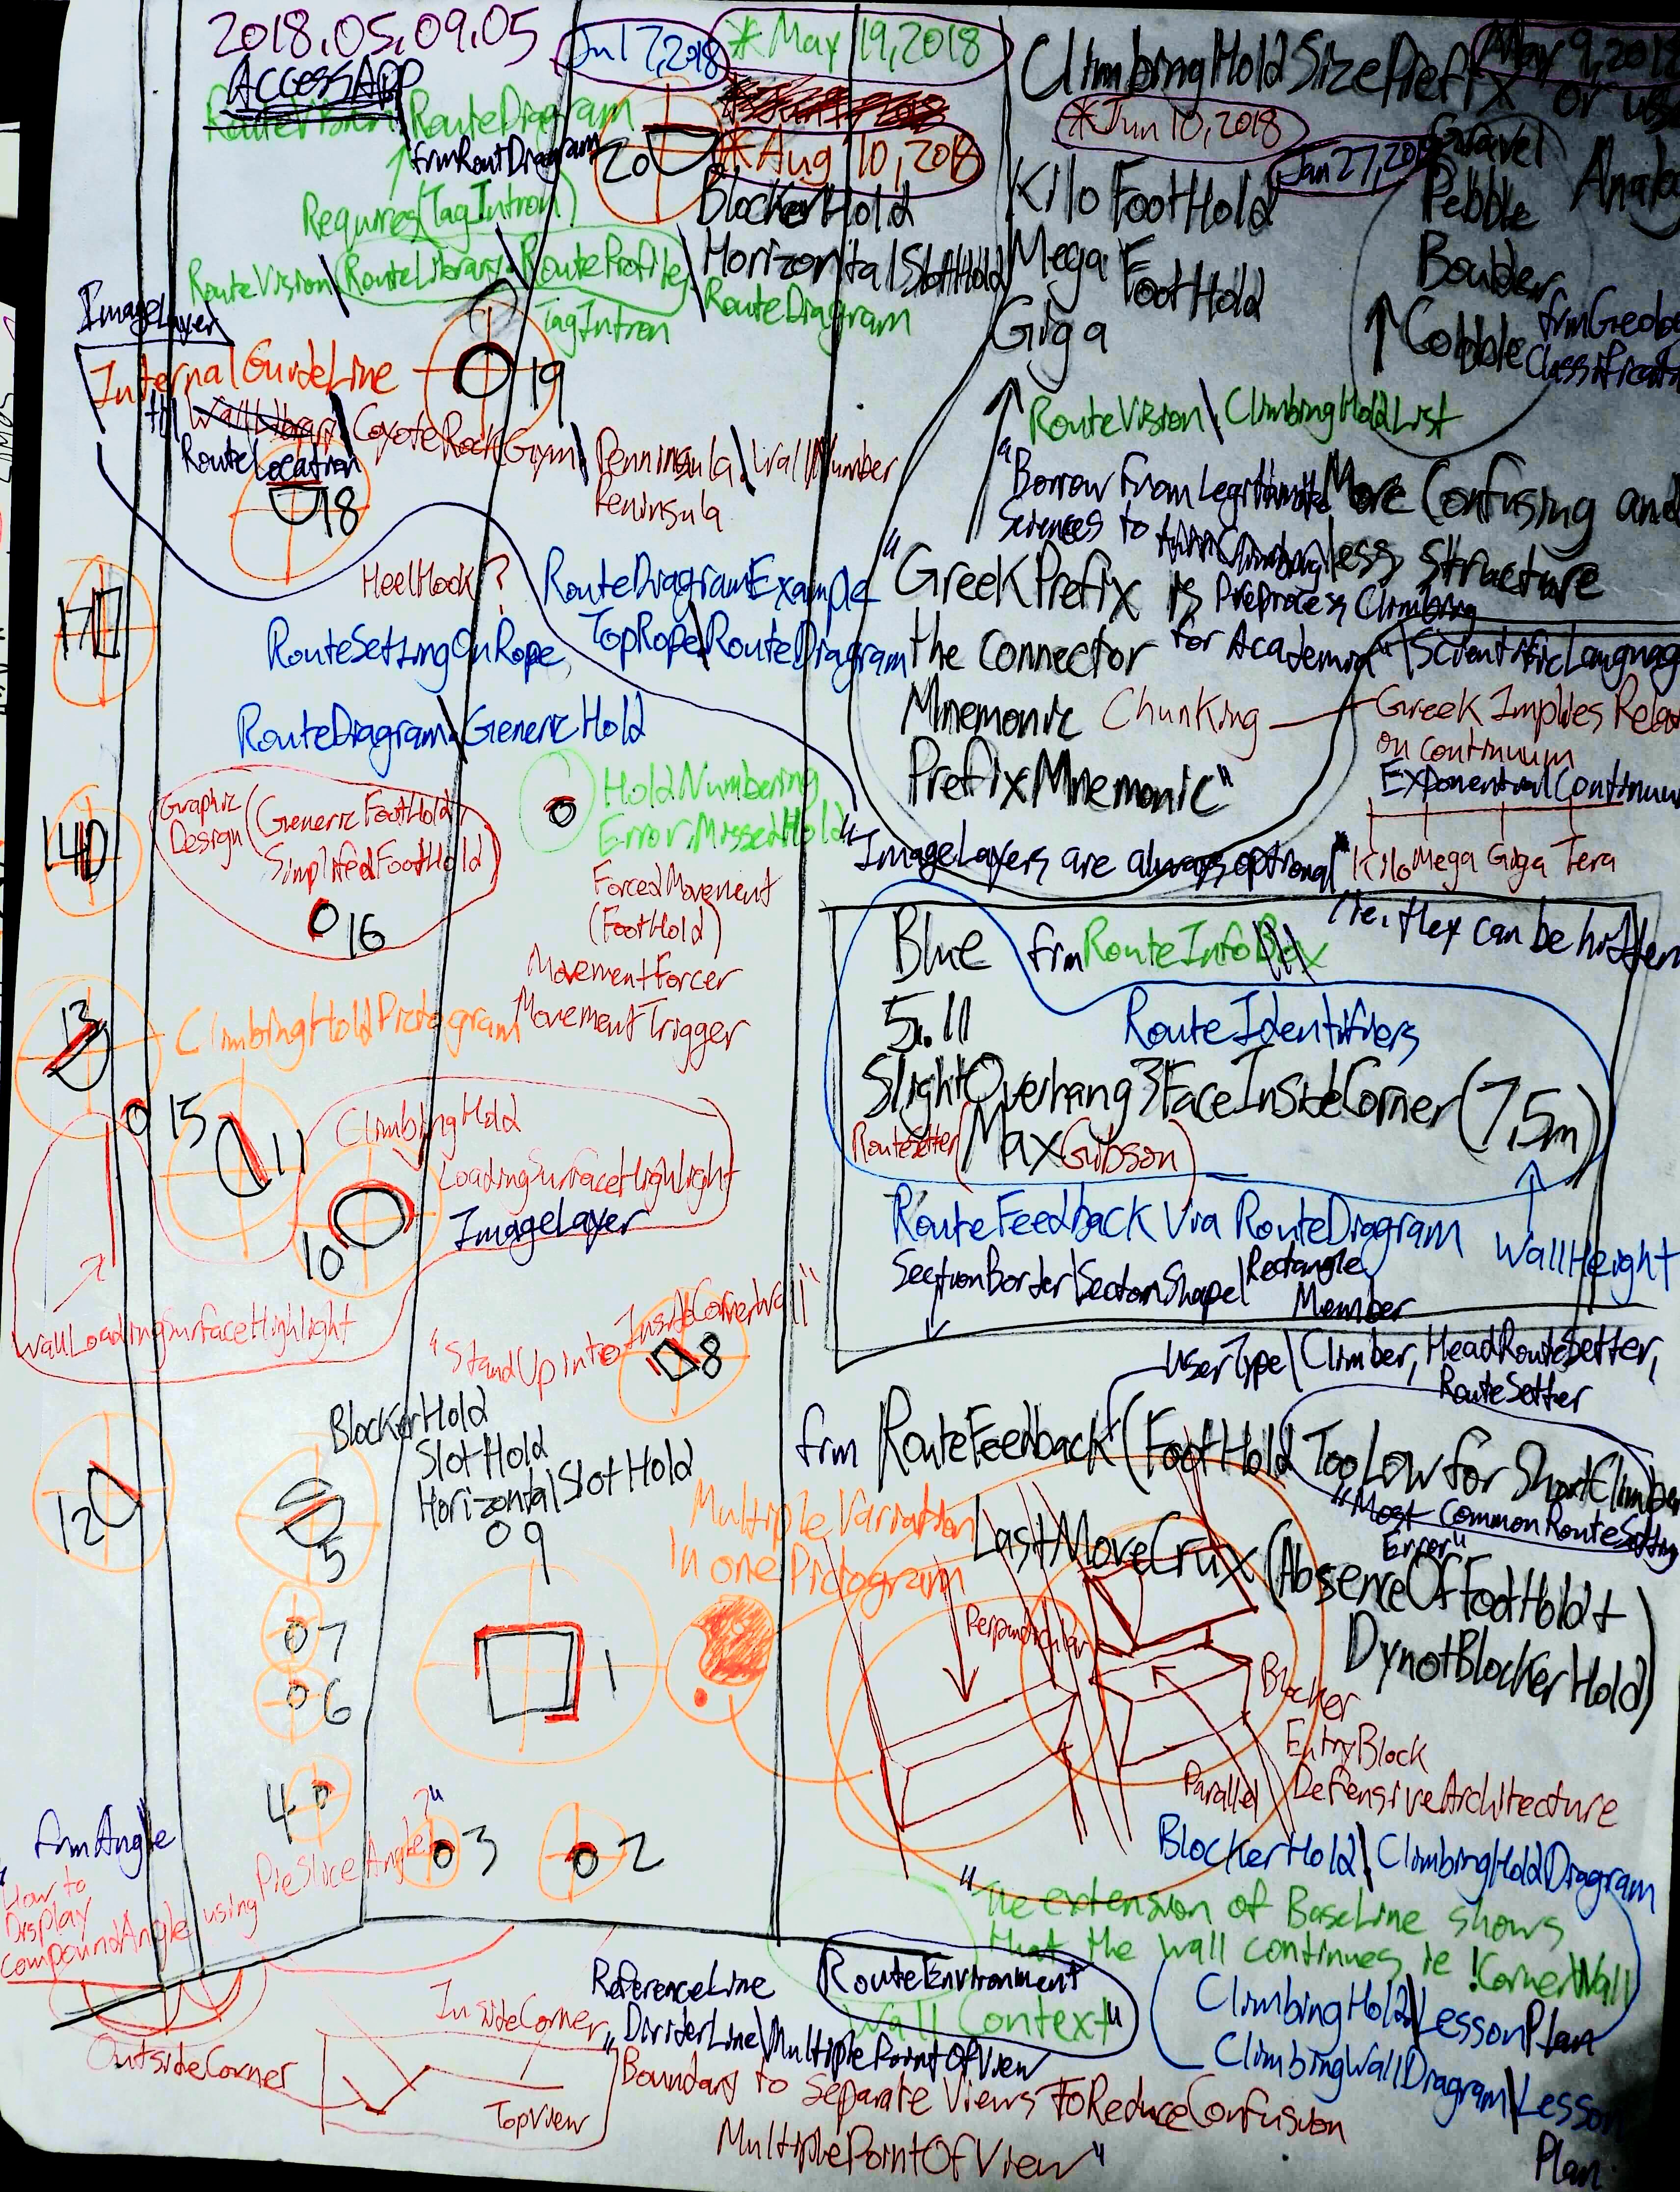 2018.05.09.05
Jul 7, 2018
*May 19, 2018
May 9, 201
AccessApp
RouteVision\RouteDiagram
frmRoutDiagram
Requires(TagIntron)
RouteVision\RouteLibrary\RouteProfile\RouteDiagram
TagIntron
20
*Aug 10, 2018
BlockerHold
HorizontalSlotHold
ClimbingHoldSizePrefix or us
*Jun 10, 2018
Jan 27, 20
Kilo FootHold
Mega FootHold
Giga
Gravel
Pebble
Boulder
Cobble
frmGeolo
Classificati
Analo
ImageLayer
InternalGuideLine
19
WallLibrary\CoyoteRockGym\Penninsula\WallNumber
RouteLocation
Peninsula
18
RouteVision\ClimbingHoldList
"Borrow from Legitimate
Sciences to
More Confusing and
less Structure
"GreekPrefix is
the connector
Mnemonic
PrefixMnemonic"
Preprocess Climbing
for Academia
ScientificLanguag
Chunking
Greek Implies Rela
on continuum
ExponentialContinuu
Kilo Mega Giga Tera
HeelHook?
RouteDiagramExample
TopRope\RouteDiagram
RouteSettingOnRope
RouteDiagram\GenericHold
17
14
Graphic
Design
(GenericFootHold,
SimplifedFootHold)
16
HoldNumbering
Error, MissedHold
"ImageLayers are always optional"
ie. they can be hidden
ForcedMovement
(FootHold)
MovementForcer
MovementTrigger
13
ClimbingHoldPictogram
15
11
ClimbingHold
LoadingSurfaceHighlight
ImageLayer
10
WallLoadingSurfaceHighlight
Blue
frmRouteInfoBox
5.11
RouteIdentifiers
SlightOverhang3FaceInsideCorner(7.5m)
RouteSetter(MaxGibson)
RouteFeedback Via RouteDiagram
WallHeight
SectionBorder\SectionShape\Rectangle
Member
UserType\Climber, HeadRouteSetter,
RouteSetter
"StandUp into InsideCornerWall"
8
BlockerHold
SlotHold
HorizontalSlotHold
9
12
5
7
6
4
3
2
1
frm RouteFeedback(FootHoldTooLow for ShortClimbe
"Most Common RouteSetting
Error"
LastMoveCrux(AbsenceOfFootHold+
DynotBlockerHold)
MultipleVariation
in one Pictogram
Perpendicular
Blocker
EntryBlock
Parallel
DefensiveArchitecture
BlockerHold\ClimbingHoldDiagram
frmAngle
How to
Display
CompoundAngle using PieSliceAngle?"
"The extension of BaseLine shows
that the wall continues ie !CornerWall
Wall Context"
RouteEnvironment
ClimbingHold\LessonPlan
ClimbingWallDiagram\Lesson
Plan
InsideCorner
OutsideCorner
TopView
ReferenceLine
"DividerLine\MultiplePointOfView
Boundary to Separate Views ToReduceConfusion
MultiplePointOfView"